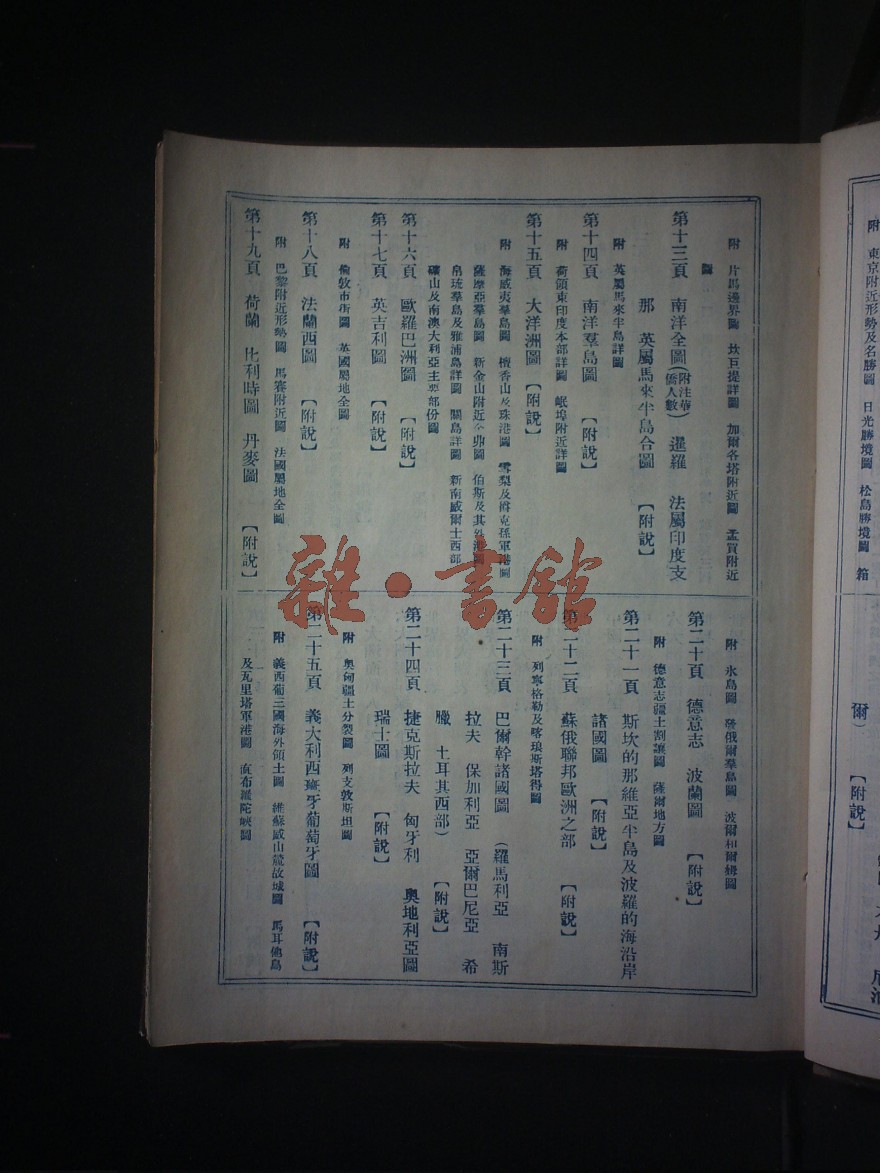 附 東京附近形勢及名勝圖 日光勝境圖 松島勝境圖 箱
爾） 【附說】
附 片馬邊界圖 坎巨提詳圖 加爾各塔附近圖 孟買附近
圖
第十三頁 南洋全圖(附注華僑人數) 暹羅 法屬印度支
那 英屬馬來半島合圖 【附說】
附 英屬馬來半島詳圖
第十四頁 南洋羣島圖 【附說】
附 荷領東印度本部詳圖 岷埠附近詳圖
第十五頁 大洋洲圖 【附說】
附 海威夷羣島圖 檀香山及珠港圖 雪梨及樽克孫軍港圖
薩摩亞羣島圖 新金山附近分圖 伯斯及其外港圖
帛琉羣島及雅浦島詳圖 關島詳圖 新南威爾士西部
礦山及南澳大利亞主要部份圖
第十六頁 歐羅巴洲圖 【附說】
第十七頁 英吉利圖 【附說】
附 倫敦市街圖 英國屬地全圖
第十八頁 法蘭西圖 【附說】
附 巴黎附近形勢圖 馬賽附近圖 法國屬地全圖
第十九頁 荷蘭 比利時圖 丹麥圖 【附說】
附 氷島圖 發俄爾羣島圖 波爾和爾姆圖
第二十頁 德意志 波蘭圖 【附說】
附 德意志疆土割讓圖 薩爾地方圖
第二十一頁 斯坎的那維亞半島及波羅的海沿岸
諸國圖 【附說】
第二十二頁 蘇俄聯邦歐洲之部 【附說】
附 列寧格勒及喀琅斯塔得圖
第二十三頁 巴爾幹諸國圖 （羅馬利亞 南斯
拉夫 保加利亞 亞爾巴尼亞 希
臘 土耳其西部） 【附說】
第二十四頁 捷克斯拉夫 匈牙利 奧地利亞圖
瑞士圖 【附說】
附 奧匈疆土分裂圖 列支敦斯坦圖
第二十五頁 義大利西班牙葡萄牙圖 【附說】
附 義西葡三國海外領土圖 維蘇威山龍故城圖 馬耳他島
及瓦里塔軍港圖 直布羅陀峽圖
雜·書館